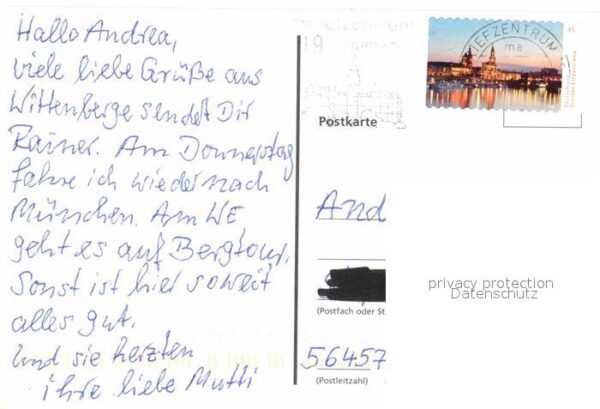 Hallo Andrea,
viele liebe Grüße aus
Wittenberge sendet Dir
Rainer. Am Donnerstag
fahre ich wieder nach
München. Am WE
geht es auf Bergtour.
Sonst ist hier soweit
alles gut.
Und sie herzten
ihre liebe Mutti
BRIEFZENTRUM
19
45
Postkarte
And
privacy protection
Datenschutz
(Postfach oder St
56457
(Postleitzahl)